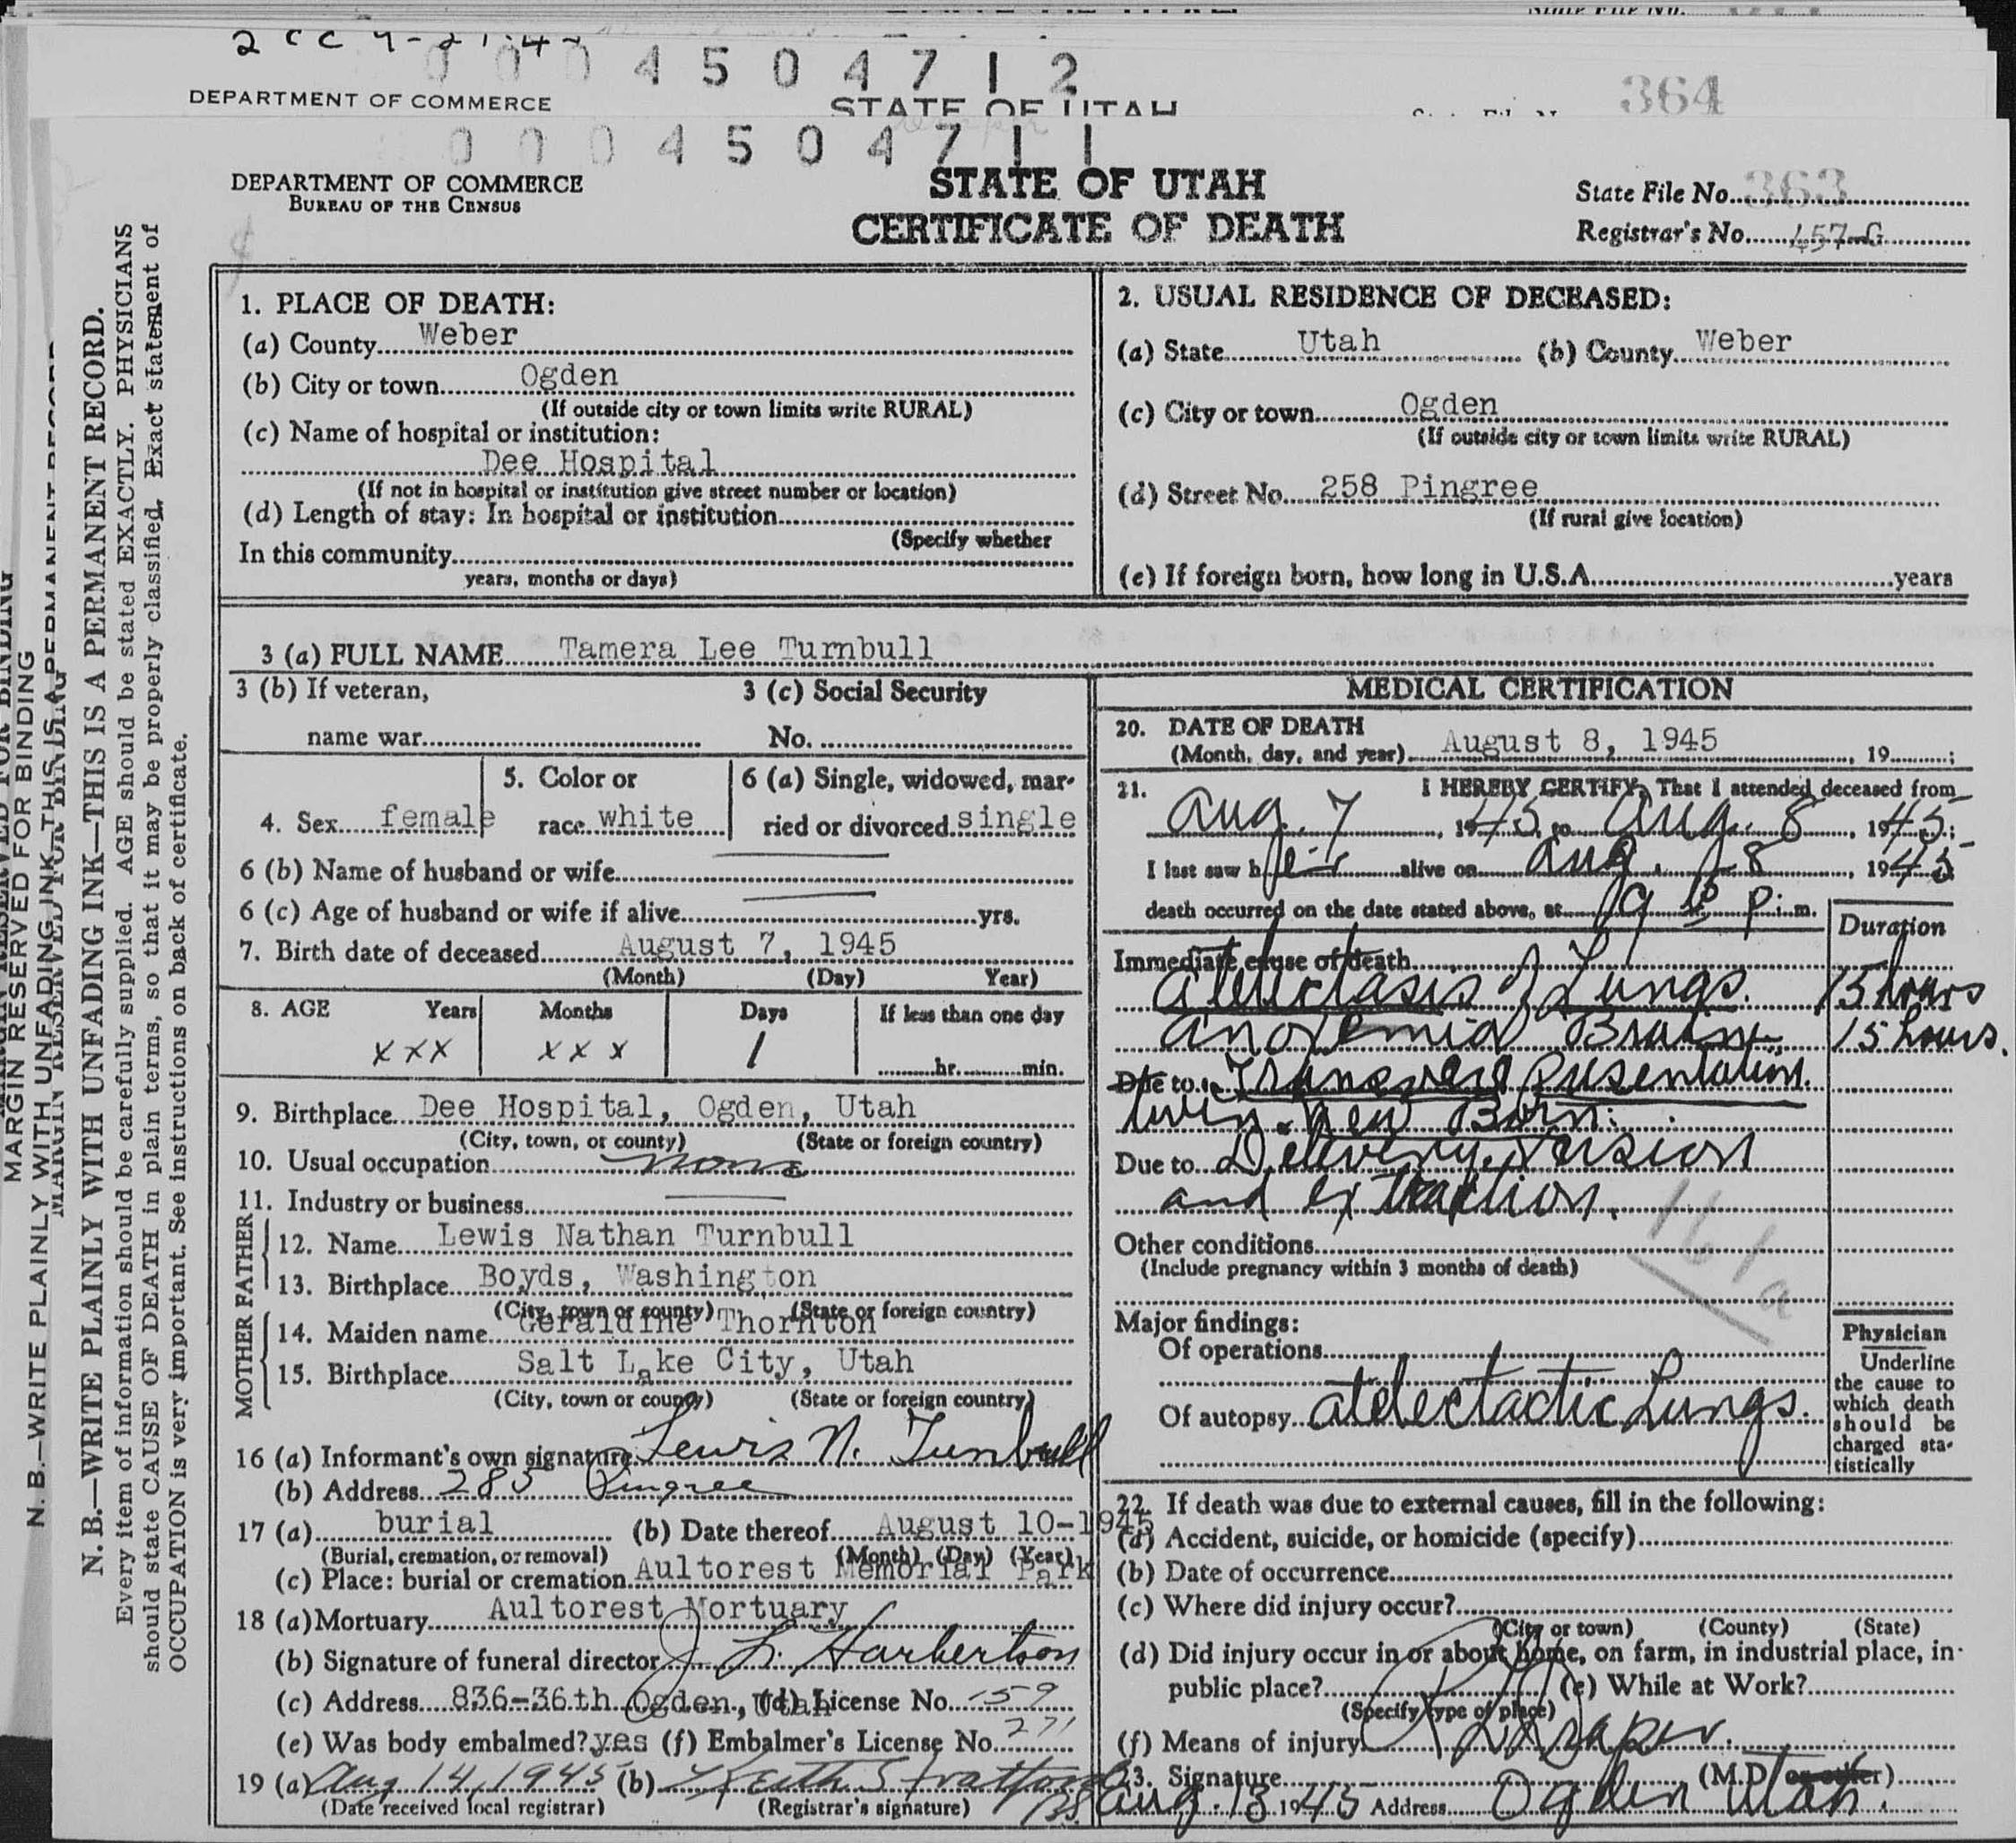 2 CC
0 0 0 4 5 0 4 7 1 2
364
DEPARTMENT OF COMMERCE
STATE OF UTAH
0 0 0 4 5 0 4 7 1 1
DEPARTMENT OF COMMERCE
BUREAU OF THE CENSUS
STATE OF UTAH
CERTIFICATE OF DEATH
State File No. 363
Registrar's No. 457-G
MARGIN RESERVED FOR BINDING
N. B.—WRITE PLAINLY WITH UNFADING INK—THIS IS A PERMANENT RECORD
MARGIN RESERVED FOR BINDING
N. B.—WRITE PLAINLY WITH UNFADING INK—THIS IS A PERMANENT RECORD.
Every item of information should be carefully supplied. AGE should be stated EXACTLY. PHYSICIANS
should state CAUSE OF DEATH in plain terms, so that it may be properly classified. Exact statement of
OCCUPATION is very important. See instructions on back of certificate.
1. PLACE OF DEATH:
(a) County Weber
(b) City or town Ogden
(If outside city or town limits write RURAL)
(c) Name of hospital or institution:
Dee Hospital
(If not in hospital or institution give street number or location)
(d) Length of stay: In hospital or institution
(Specify whether
In this community
years, months or days)
2. USUAL RESIDENCE OF DECEASED:
(a) State Utah (b) County Weber
(c) City or town Ogden
(If outside city or town limits write RURAL)
(d) Street No. 258 Pingree
(If rural give location)
(e) If foreign born, how long in U.S.A. years
3 (a) FULL NAME Tamera Lee Turnbull
3 (b) If veteran,
name war
3 (c) Social Security
No.
4. Sex female
5. Color or
race white
6 (a) Single, widowed, mar-
ried or divorced single
6 (b) Name of husband or wife
6 (c) Age of husband or wife if alive yrs.
7. Birth date of deceased August 7, 1945
(Month) (Day) Year)
8. AGE Years Months Days If less than one day
xxx xxx 1 hr. min.
9. Birthplace Dee Hospital, Ogden, Utah
(City, town, or county) (State or foreign country)
10. Usual occupation none
11. Industry or business
FATHER
12. Name Lewis Nathan Turnbull
13. Birthplace Boyds, Washington
(City, town or county) (State or foreign country)
MOTHER
14. Maiden name Geraldine Thornton
15. Birthplace Salt Lake City, Utah
(City, town or county) (State or foreign country)
16 (a) Informant's own signature Lewis N. Turnbull
(b) Address 285 Pingree
17 (a) burial (b) Date thereof August 10-1945
(Burial, cremation, or removal) (Month) (Day) (Year)
(c) Place: burial or cremation Aultorest Memorial Park
18 (a) Mortuary Aultorest Mortuary
(b) Signature of funeral director J. L. Harbertson
(c) Address 836-36th Ogden, Utah (d) License No. 159
(e) Was body embalmed? yes (f) Embalmer's License No. 271
19 (a) Aug 14, 1945 (b) Keith Stratford
(Date received local registrar) (Registrar's signature)
MEDICAL CERTIFICATION
20. DATE OF DEATH
(Month, day, and year) August 8, 1945, 19 ;
21. I HEREBY CERTIFY, That I attended deceased from
Aug. 7, 1945, to Aug. 8, 1945;
I last saw her alive on Aug. 8, 1945
death occurred on the date stated above, at 9 p. m.
Duration
Immediate cause of death
atelectasis of Lungs. 15 hours
anoxemia Brain 15 hours.
Due to Transverse Presentation.
twin. New Born.
Due to Delivery. Version
and extraction.
161a
Other conditions
(Include pregnancy within 3 months of death)
Major findings:
Of operations
Of autopsy atelectactic Lungs.
Physician
Underline
the cause to
which death
should be
charged sta-
tistically
22. If death was due to external causes, fill in the following:
(a) Accident, suicide, or homicide (specify)
(b) Date of occurrence
(c) Where did injury occur?
(City or town) (County) (State)
(d) Did injury occur in or about home, on farm, in industrial place, in
public place? (e) While at Work?
(Specify type of place)
(f) Means of injury
23. Signature Draper. (M.D. or other)
Aug. 13 1945 Address Ogden Utah.